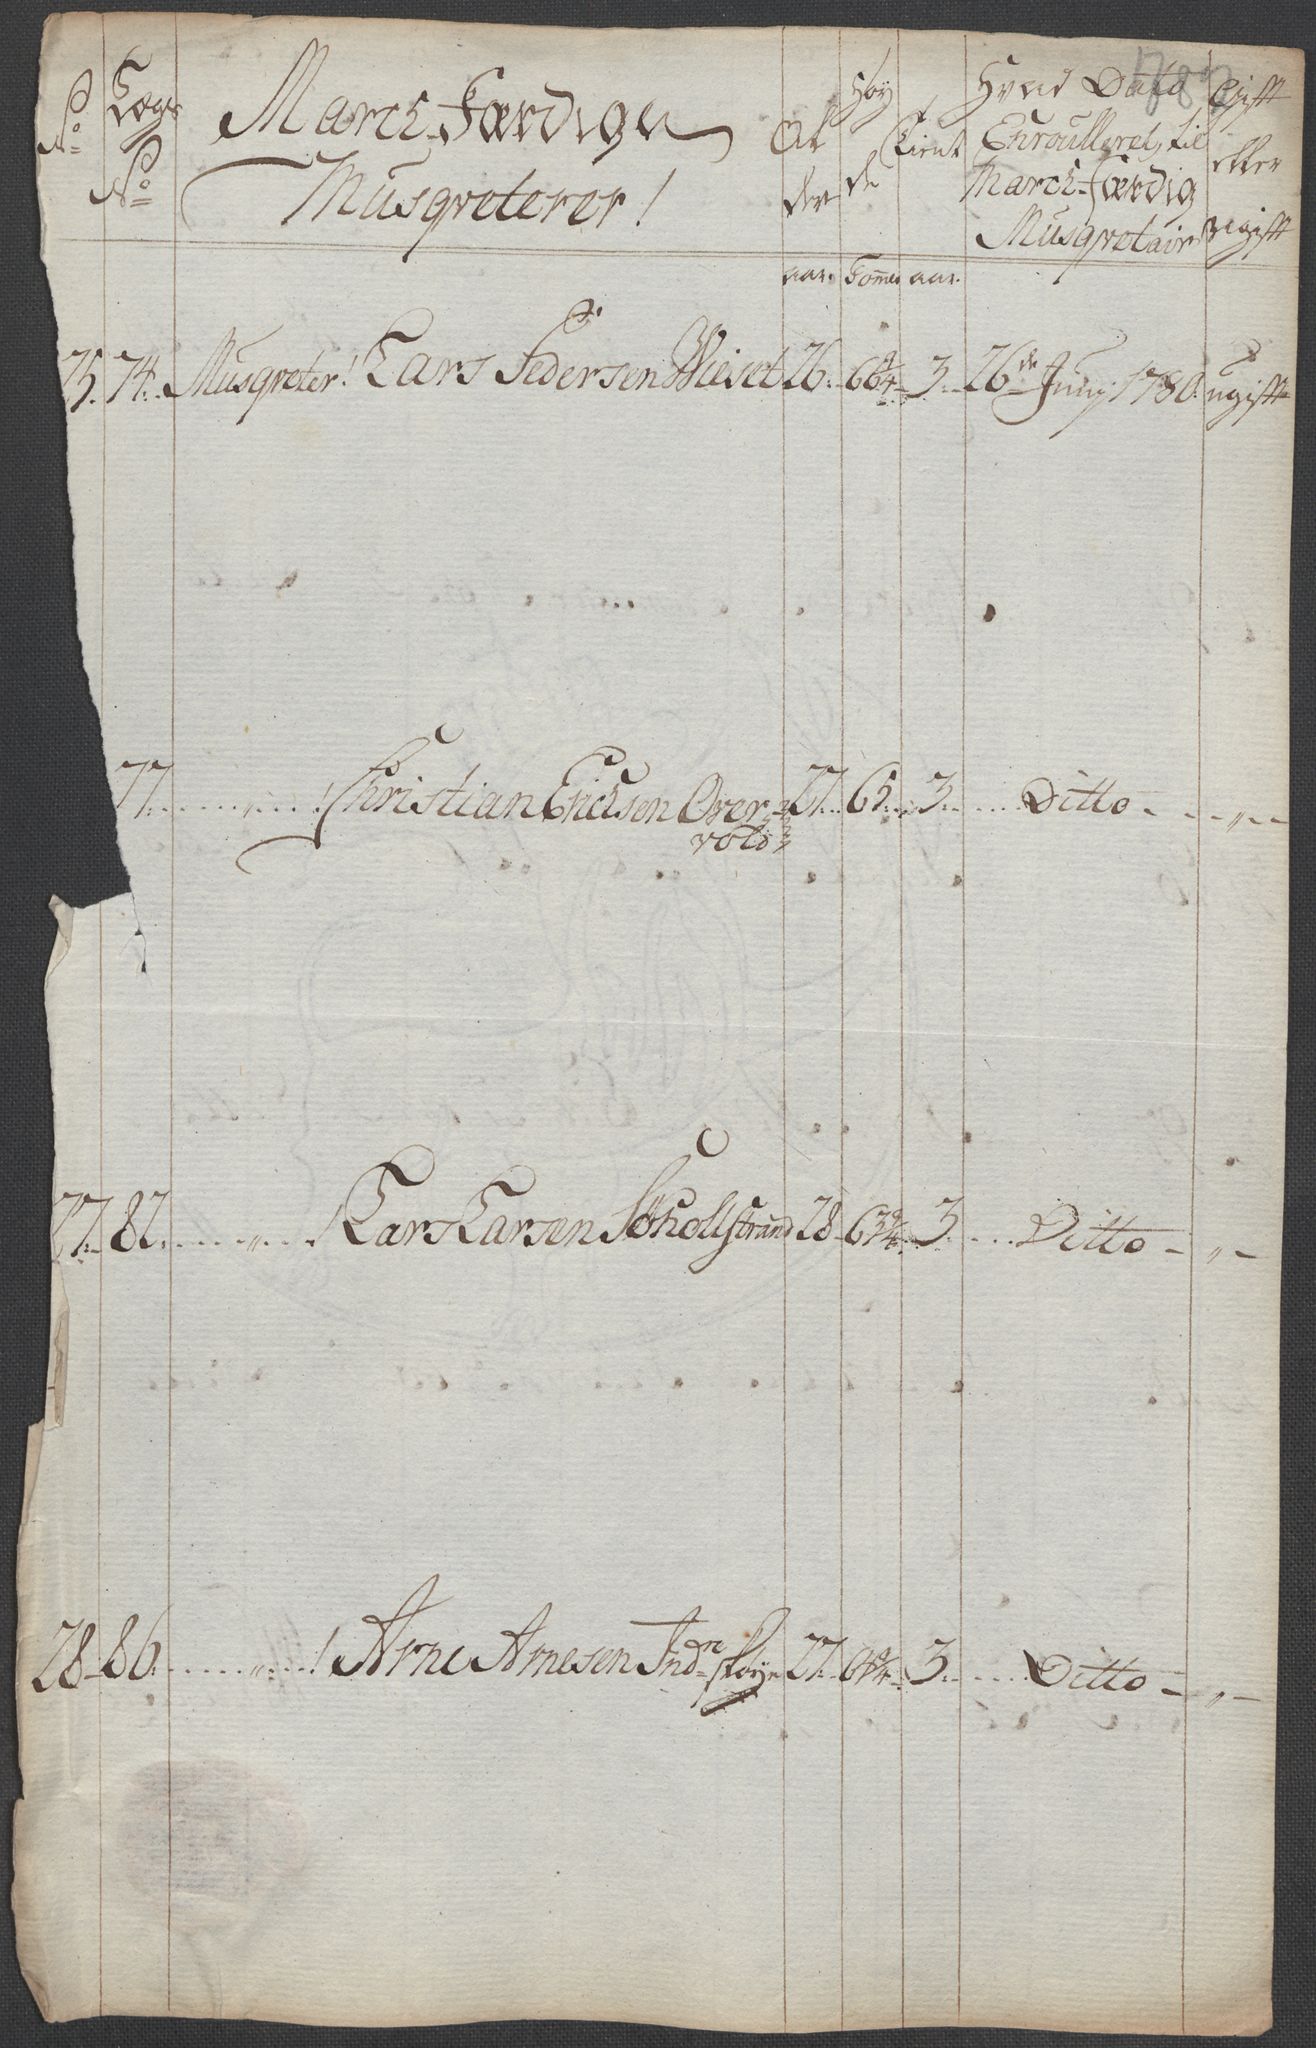 No
Lægs No
March Færdige
Musqveterer!
Al der
Høy de
Tient
Hvad Dato
Enroulleret, til
March-Færdig
Musqvetair
Gifft
eller
ugifft
aar. Tomer aar.
75. 74. Musqveter! Lars Pedersen Wieset 26. 66 3. 26de Junj 1780. ugifft
77. " ! Christian Erichsen Over- 27. 65. 3. Ditto - "
vold
27. 82. " Lars Larsen Søholtstrand 28 63 3/4 3. Ditto - "
28 86. " ! Arne Arnesen Indre 27. 64 3. Ditto - "